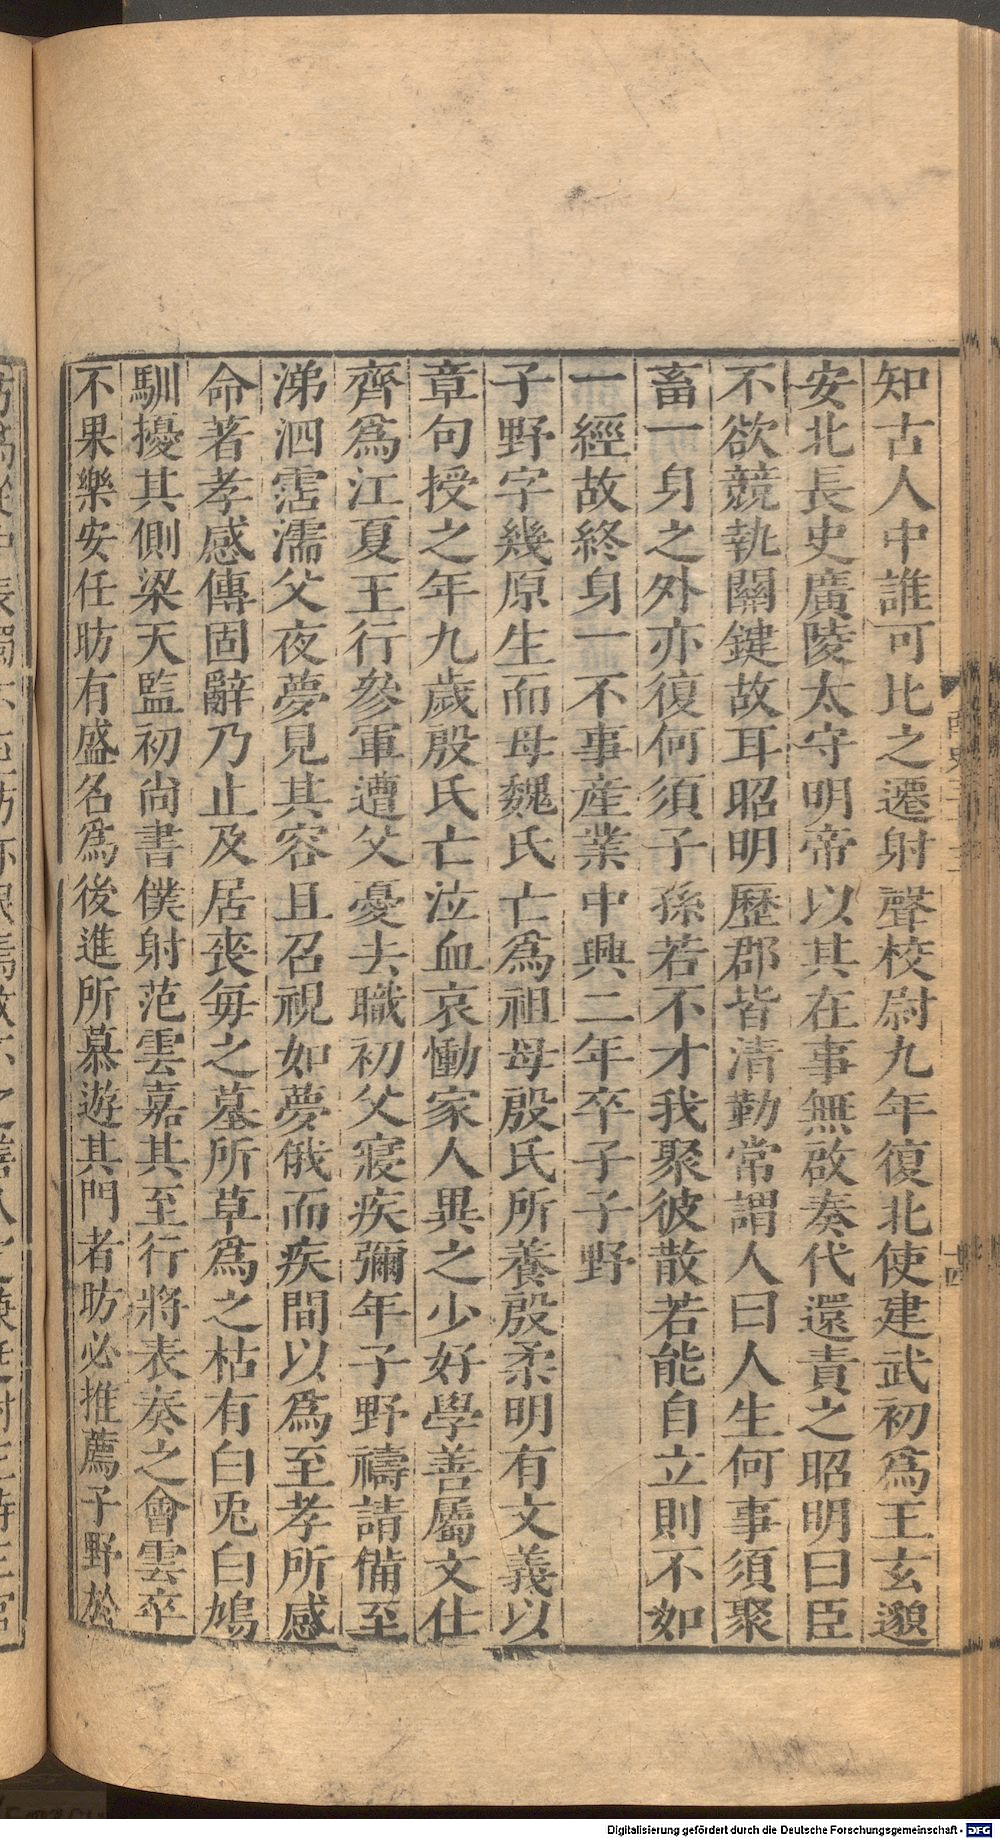 知古人中誰可比之遷射聲校尉九年復北使建武初爲王玄邈
安北長史廣陵太守明帝以其在事無啟奏代還責之昭明曰臣
不欲競執關鍵故耳昭明歷郡皆清勤常謂人曰人生何事須聚
畜一身之外亦復何須子孫若不才我聚彼散若能自立則不如
一經故終身一不事産業中興二年卒子子野
子野字幾原生而母魏氏亡爲祖母殷氏所養殷柔明有文義以
章句授之年九歲殷氏亡泣血哀慟家人異之少好學善屬文仕
齊爲江夏王行參軍遭父憂去職初父寢疾彌年子野禱請備至
涕泗霑濡父夜夢見其容旦召視如夢俄而疾間以爲至孝所感
命著孝感傳固辭乃止及居喪每之墓所草爲之枯有白兎白鳩
馴擾其側梁天監初尚書僕射范雲嘉其至行將表奏之會雲卒
不果樂安任昉有盛名爲後進所慕遊其門者昉必推薦子野於
Digitalisierung gefördert durch die Deutsche Forschungsgemeinschaft - DFG